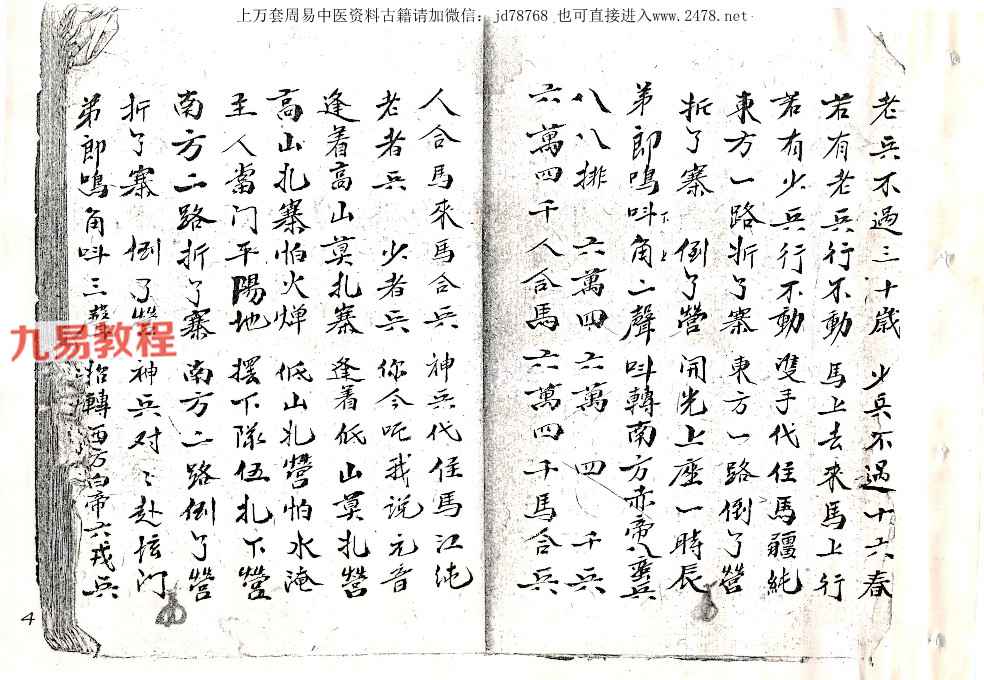 上万套周易中医资料古籍请加微信: jd78768 也可直接进入www.2478.net
老兵不過三十歲 少兵不過十六春
若有老兵行不動 馬上去來馬上行
若有少兵行不動 雙手代住馬疆純
東方一路折了寨 東方一路倒了營
折了寨 倒了營 開光上座一時辰
弟郎鳴呌角二聲 呌轉南方赤帝八蠻兵
八八排 六萬四 六萬四千兵
六萬四千人合馬 六萬四千馬合兵
人合馬來馬合兵 神兵代住馬江純
老者兵 少者兵 你今听我說元音
逢着高山莫扎寨 逢着低山莫扎營
高山扎寨怕火燀 低山扎營怕水淹
至人當门平陽地 擺下隊伍扎下營
南方二路折了寨 南方二路倒了營
折了寨 倒了營 神兵对〻赴坛门
弟郎鳴角呌三聲 招轉西方白帝六戎兵
九易教程
4